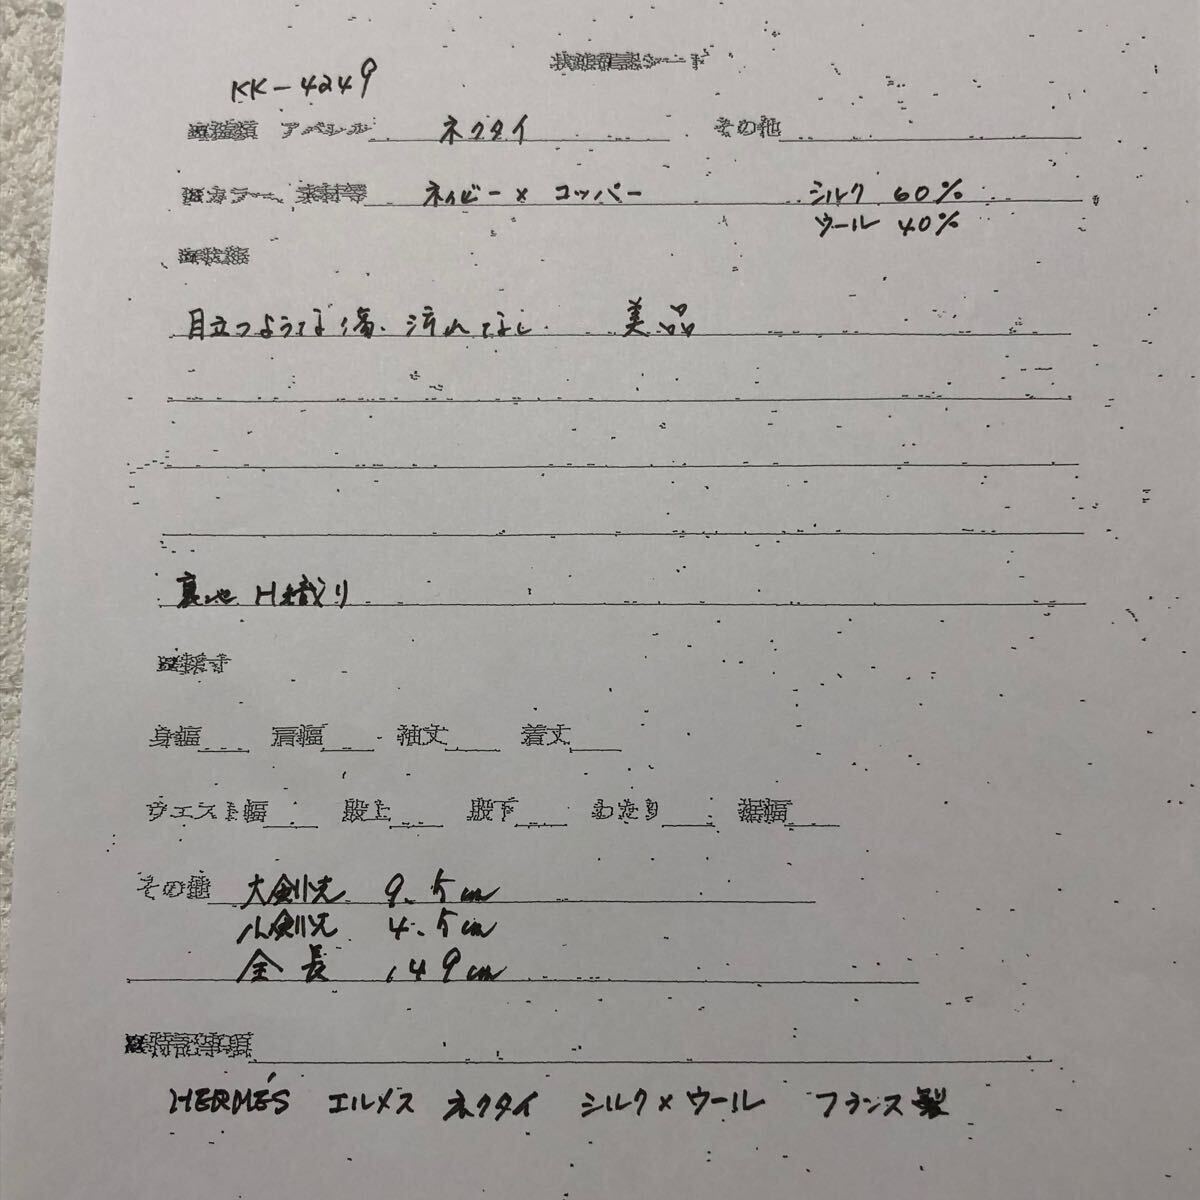 状態確認シート
KK-4249
■種類 アパレル ネクタイ その他
■カラー、素材等 ネイビー×コッパー シルク 60%
ウール 40%
■状態
目立つような傷、汚れなし 美品
裏地 H織り
■採寸
身幅 肩幅 袖丈 着丈
ウエスト幅 股上 股下 わたり 裾幅
その他 大剣先 9.5cm
小剣先 4.5cm
全長 149cm
■特記事項
HERMÉS エルメス ネクタイ シルク×ウール フランス製